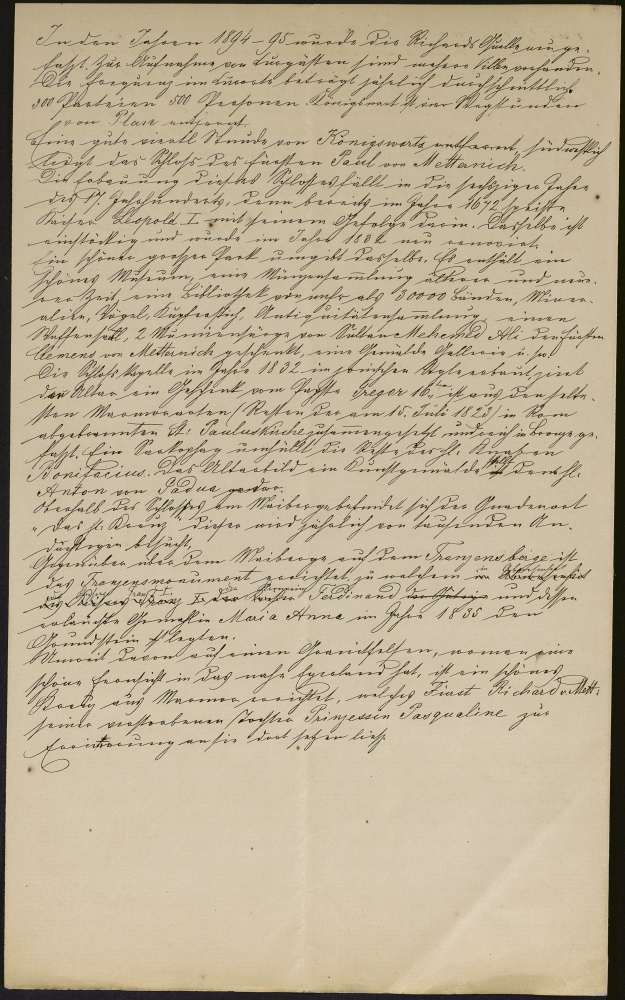 In den Jahren 1894–95 wurde die Richards Quelle neu ge-
faßt. Zur Aufnahme von Kurgästen sind mehrere Villen vorhanden.
Die Frequenz im Kurorte beträgt jährlich durchschnittlich
300 Parteien 500 Personen. Königswart ist vier Wegstunden
von Plan entfernt.
Eine gute viertl Stunde von Königswarts entfernt, südwestlich
liegt das Schloß des Fürsten Paul von Metternich.
Die Erbauung dieses Schlosses fällt in die sechziger Jahre
des 17 Jahrhunderts, denn bereits im Jahre 1672 speiste
Kaiser Leopold I mit seinem Gefolge darin. Dasselbe ist
einstöckig und wurde im Jahre 18 neu renovirt.
Ein schöner großer Park umgibt dasselbe. Es enthält ein
schönes Museum, eine Münzensammlung älterer und neu-
erer Zeit, eine Bibliothek von mehr als 30000 Bänden, Miner-
alien, Vögel, Kupferstich, Antiquitätensammlung, einen
Waffensaal, 2 Mumiensärge vom Sultan Mehemed Ali dem Fürsten
Clemens von Metternich geschenkt, eine Gemälde Gallerie u.s.w.
Die Schloß Kapelle im Jahre 1832 im jonischen Style erbaut, ziert
den Altar ein Geschenk vom Papste Gregor 16., ist aus den selte-
sten Marmorarten (Resten der am 15. Juli 1823) in Rom
abgebrannten St. Pauluskirche zusammengesetzt und reich in Bronze ge-
faßt. Ein Sarkophag umhüllt die Reste des hl. Knaben
Bonifacius. Das Altarbild ein Kunstgemälde stellt den hl.
Anton von Padua dar.
Oberhalb des Schlosses am Maiberge befindet sich der Gnadenort
"Das k. Kreuz" dieser wird jährlich von tausenden An-
dächtigen besucht.
Gegenüber über dem Maiberge auf dem Franzensberge ist
das Franzensmonument errichtet, zu welchem
Franz I. Ferdinand und dessen
erlauchte Gemahlin Maria Anna im Jahre 1835 den
Grundstein legten.
Unweit davon auf einem Granitfelsen, wo man eine
schöne Fernsicht in das nahe Egerland hat, ist ein schönes
Kreuz aus Marmor errichtet, welches Fürst Richard v. Mett.
seiner verstorbenen Tochter Prinzessin Pasqualine zur
Erinnerung an sie dort setzen ließ.